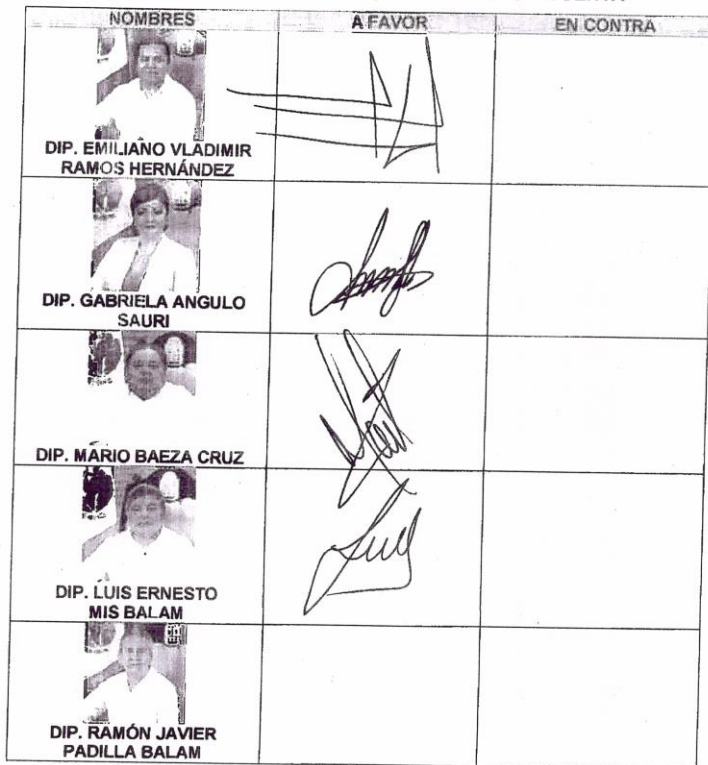 NOMBRES A FAVOR EN CONTRA
DIP. EMILIANO VLADIMIR
RAMOS HERNÁNDEZ
DIP. GABRIELA ANGULO
SAURI
DIP. MARIO BAEZA CRUZ
DIP. LUIS ERNESTO
MIS BALAM
DIP. RAMÓN JAVIER
PADILLA BALAM